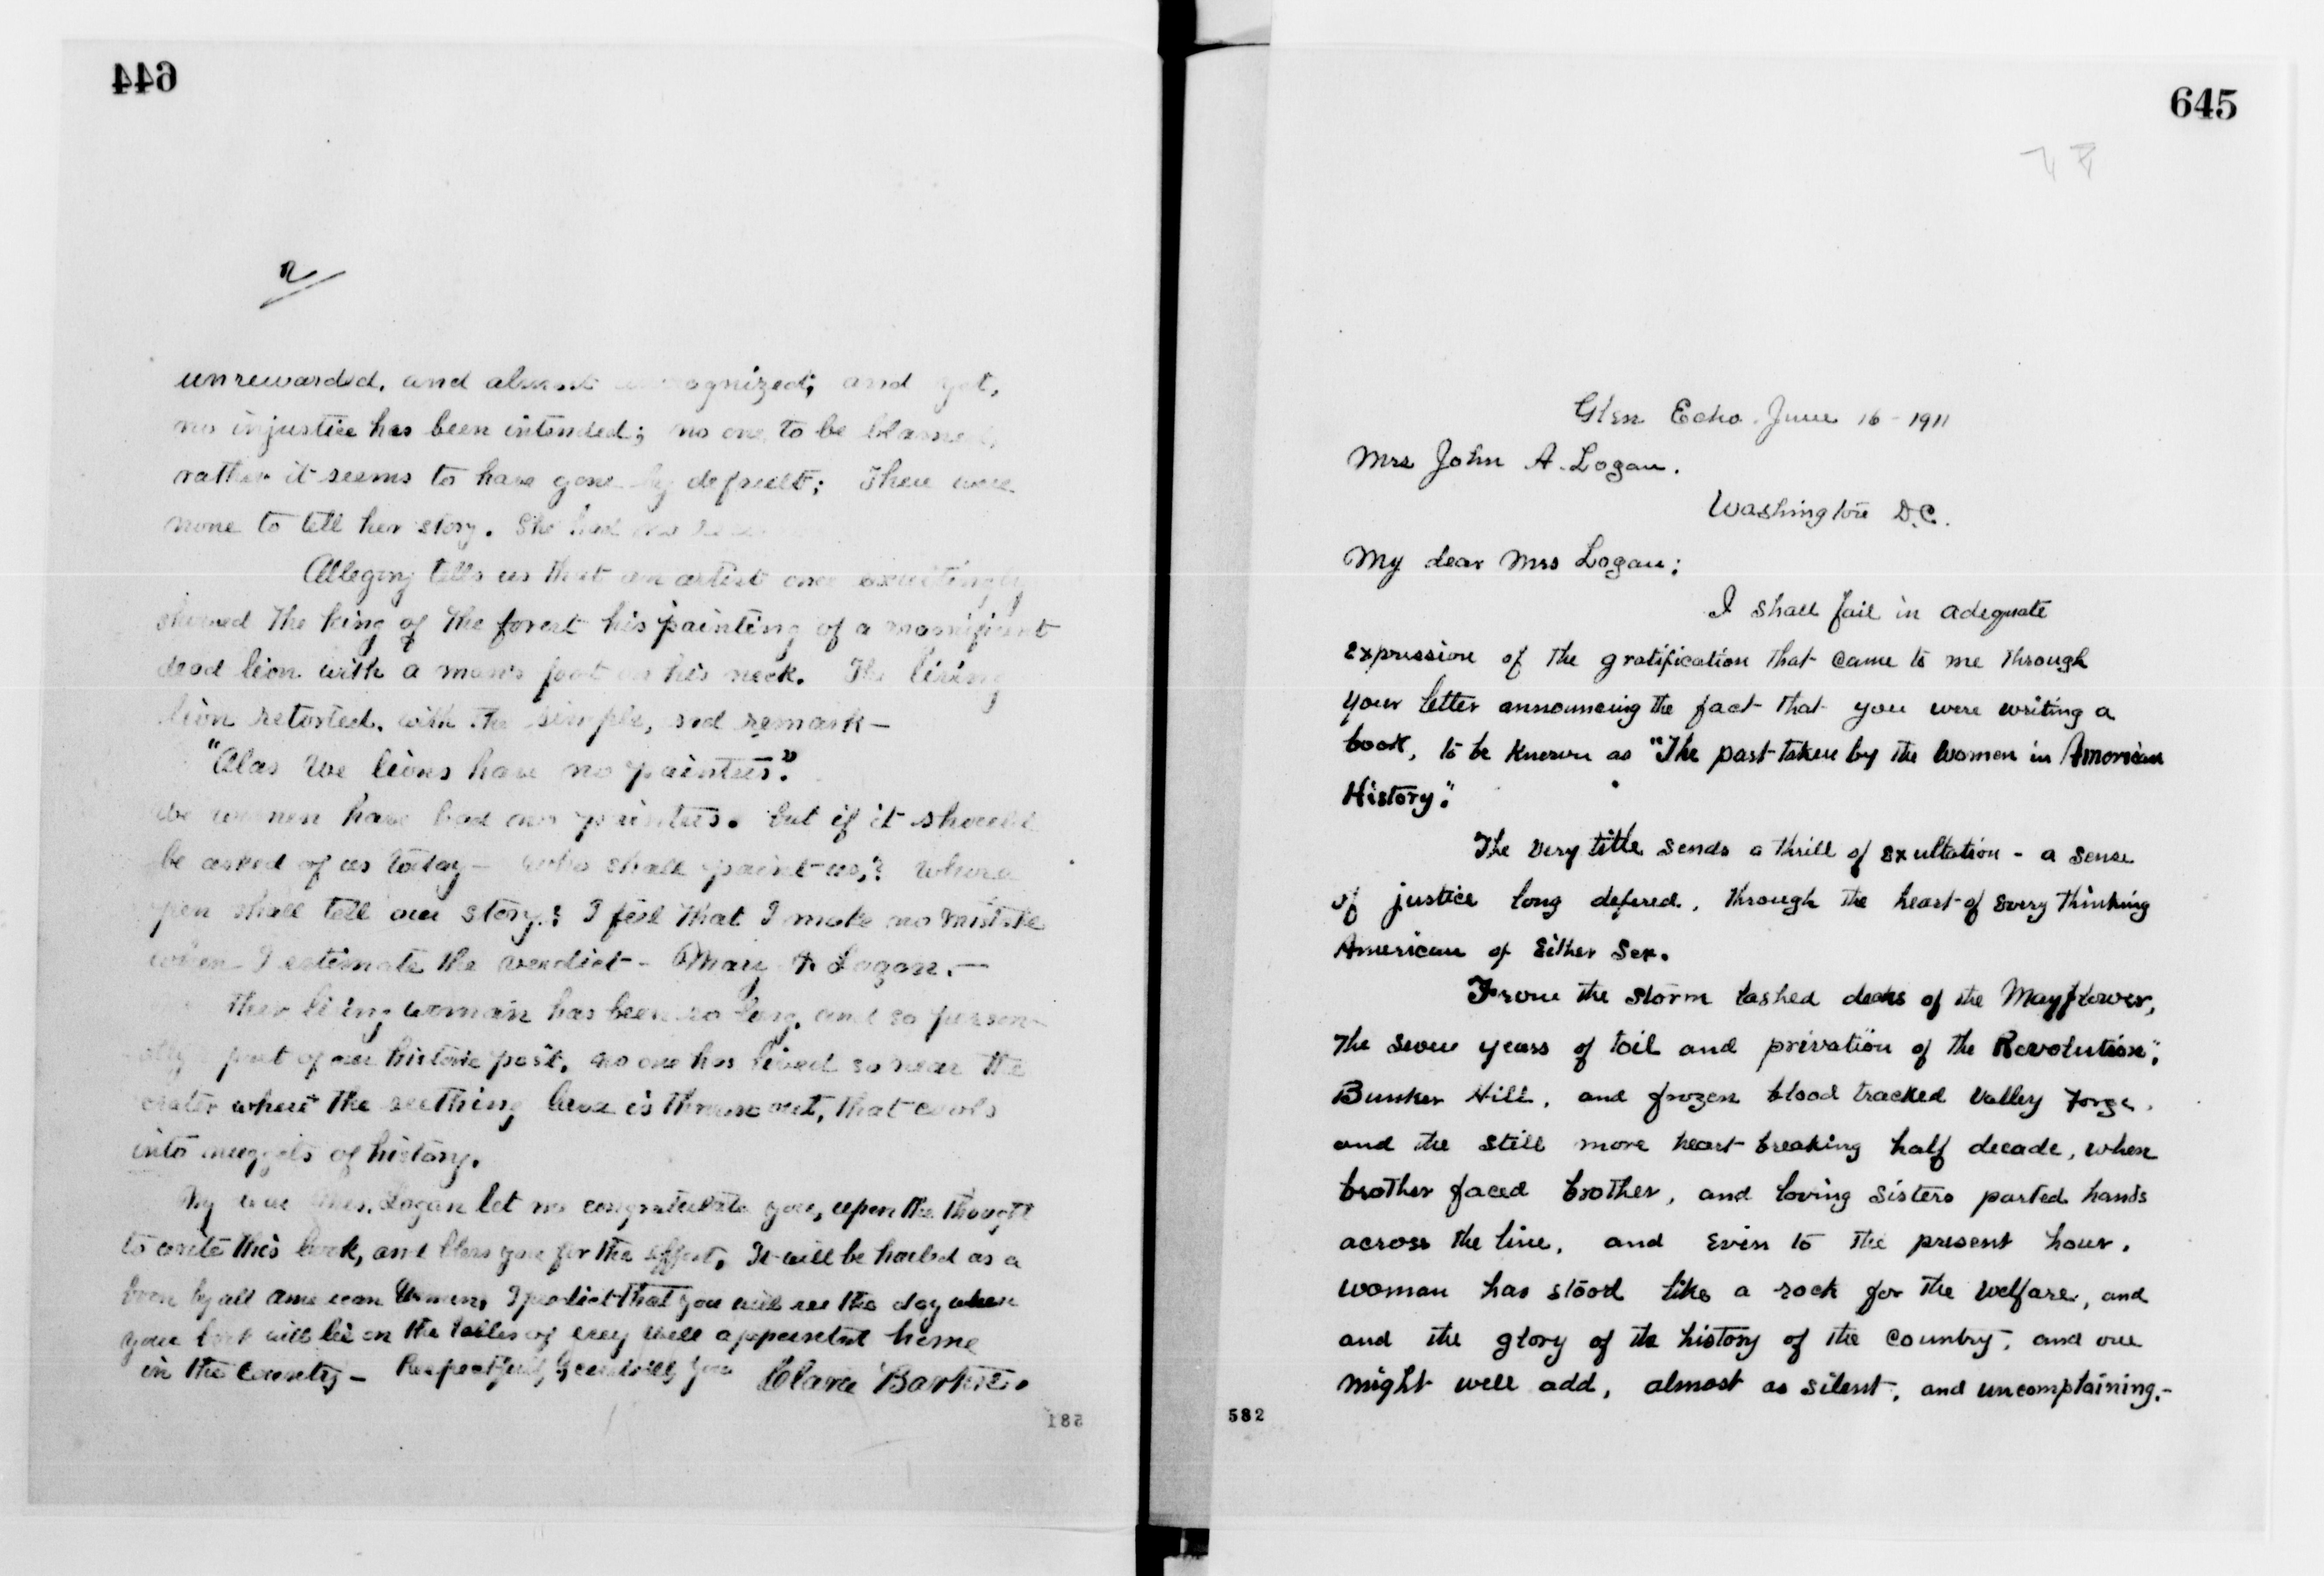 644
2
unrewarded, and almost unrecognized; and yet,
no injustice has been intended; no one to be blamed,
rather it seems to have gone by default; There were
none to tell her story. She had no
Allegory tells us that an artist once exultingly
showed the king of the forest his painting of a magnificent
dead lion with a man's foot on his neck. The living
lion retorted, with the simple, sad remark –
"Alas We lions have no painters."
We women have had no painters. but if it should
be asked of us today – who shall paint us,? Whose
pen shall tell our story.? I feel that I make no mistake
when I estimate the verdict – Mary A Logan. –
ther living woman has been so long, and so person-
ally a part of our historic past, no one has lived so near the
crater where the seething lava is thrown out, that cools
into nuggets of history.
My dear Mrs. Logan let me congratulate you, upon the thought
to write this book, and bless you for the effort. It will be hailed as a
boon by all American Women. I predict that you will see the day when
your book will lie on the tables of every well appointed home
in the Country – Respectfully, yours Clara Barton.
581
645
Glen Echo. June 16 – 1911
Mrs John A. Logan.
Washington D.C.
My dear Mrs Logan;
I shall fail in adequate
expression of the gratification that came to me through
your letter announcing the fact that you were writing a
book, to be known as "The part taken by the Women in American
History."
The very title sends a thrill of exultation – a sense
of justice long defered, through the heart of every thinking
American of either sex.
From the storm lashed decks of the Mayflower,
the seven years of toil and privation of the Revolution",
Bunker Hill, and frozen blood tracked Valley Forge,
and the still more heart breaking half decade, when
brother faced brother, and loving sisters parted hands
across the line, and even to the present hour,
woman has stood like a rock for the welfare, and
and the glory of the history of the country, and one
might well add, almost as silent, and uncomplaining. –
582